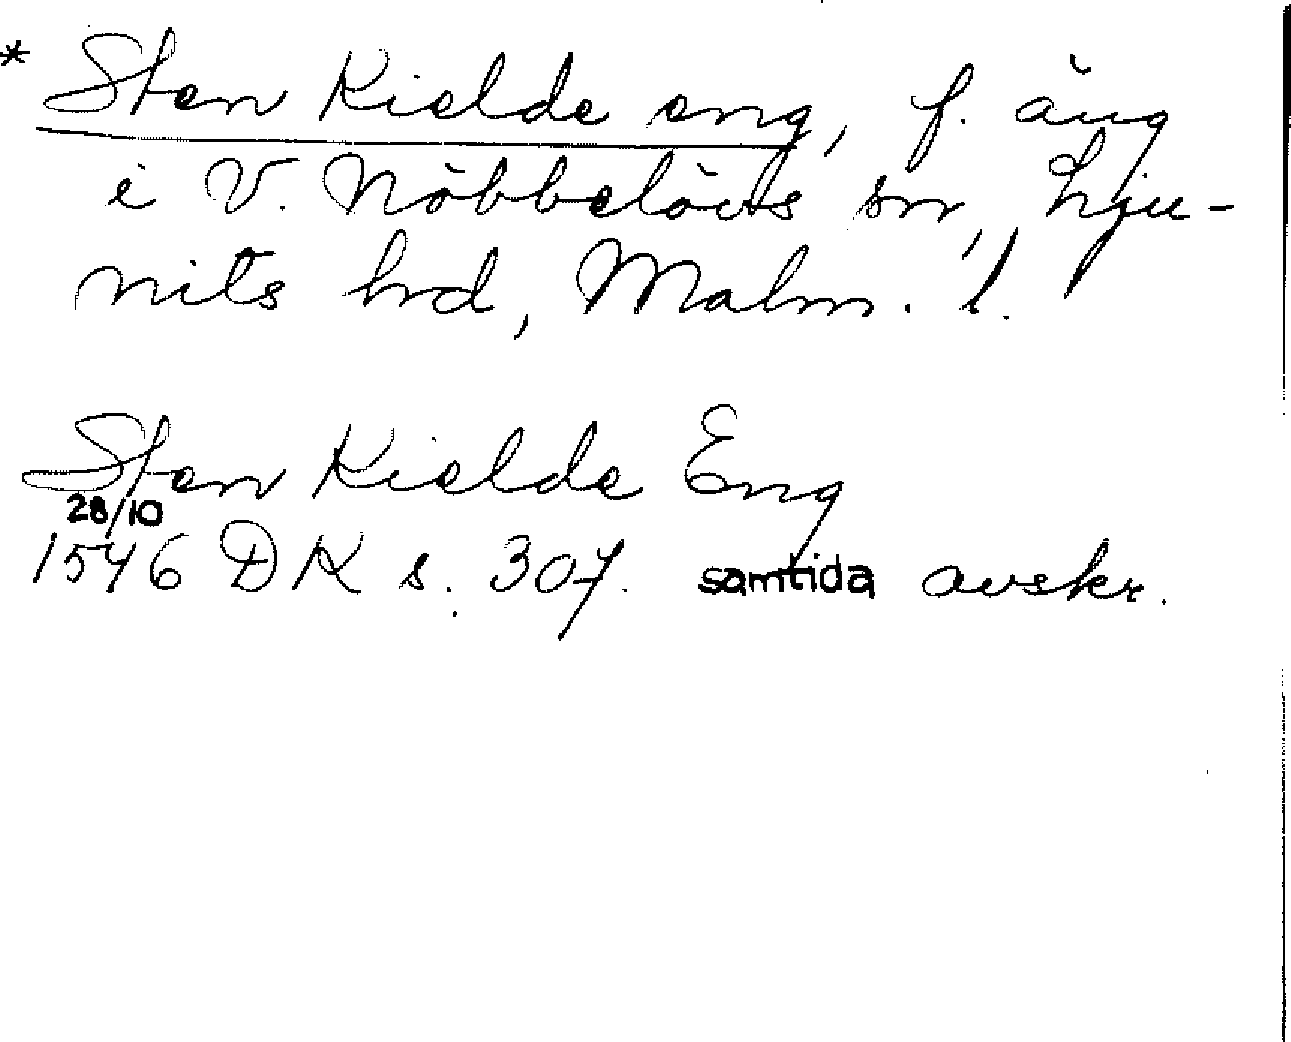 * Sten Kielde eng, f. äng
i V. Nöbbelövs sn, Lju-
nits hrd, Malm. l.
Sten Kielde Eng
28/10
1546 DK s. 307. samtida avskr.